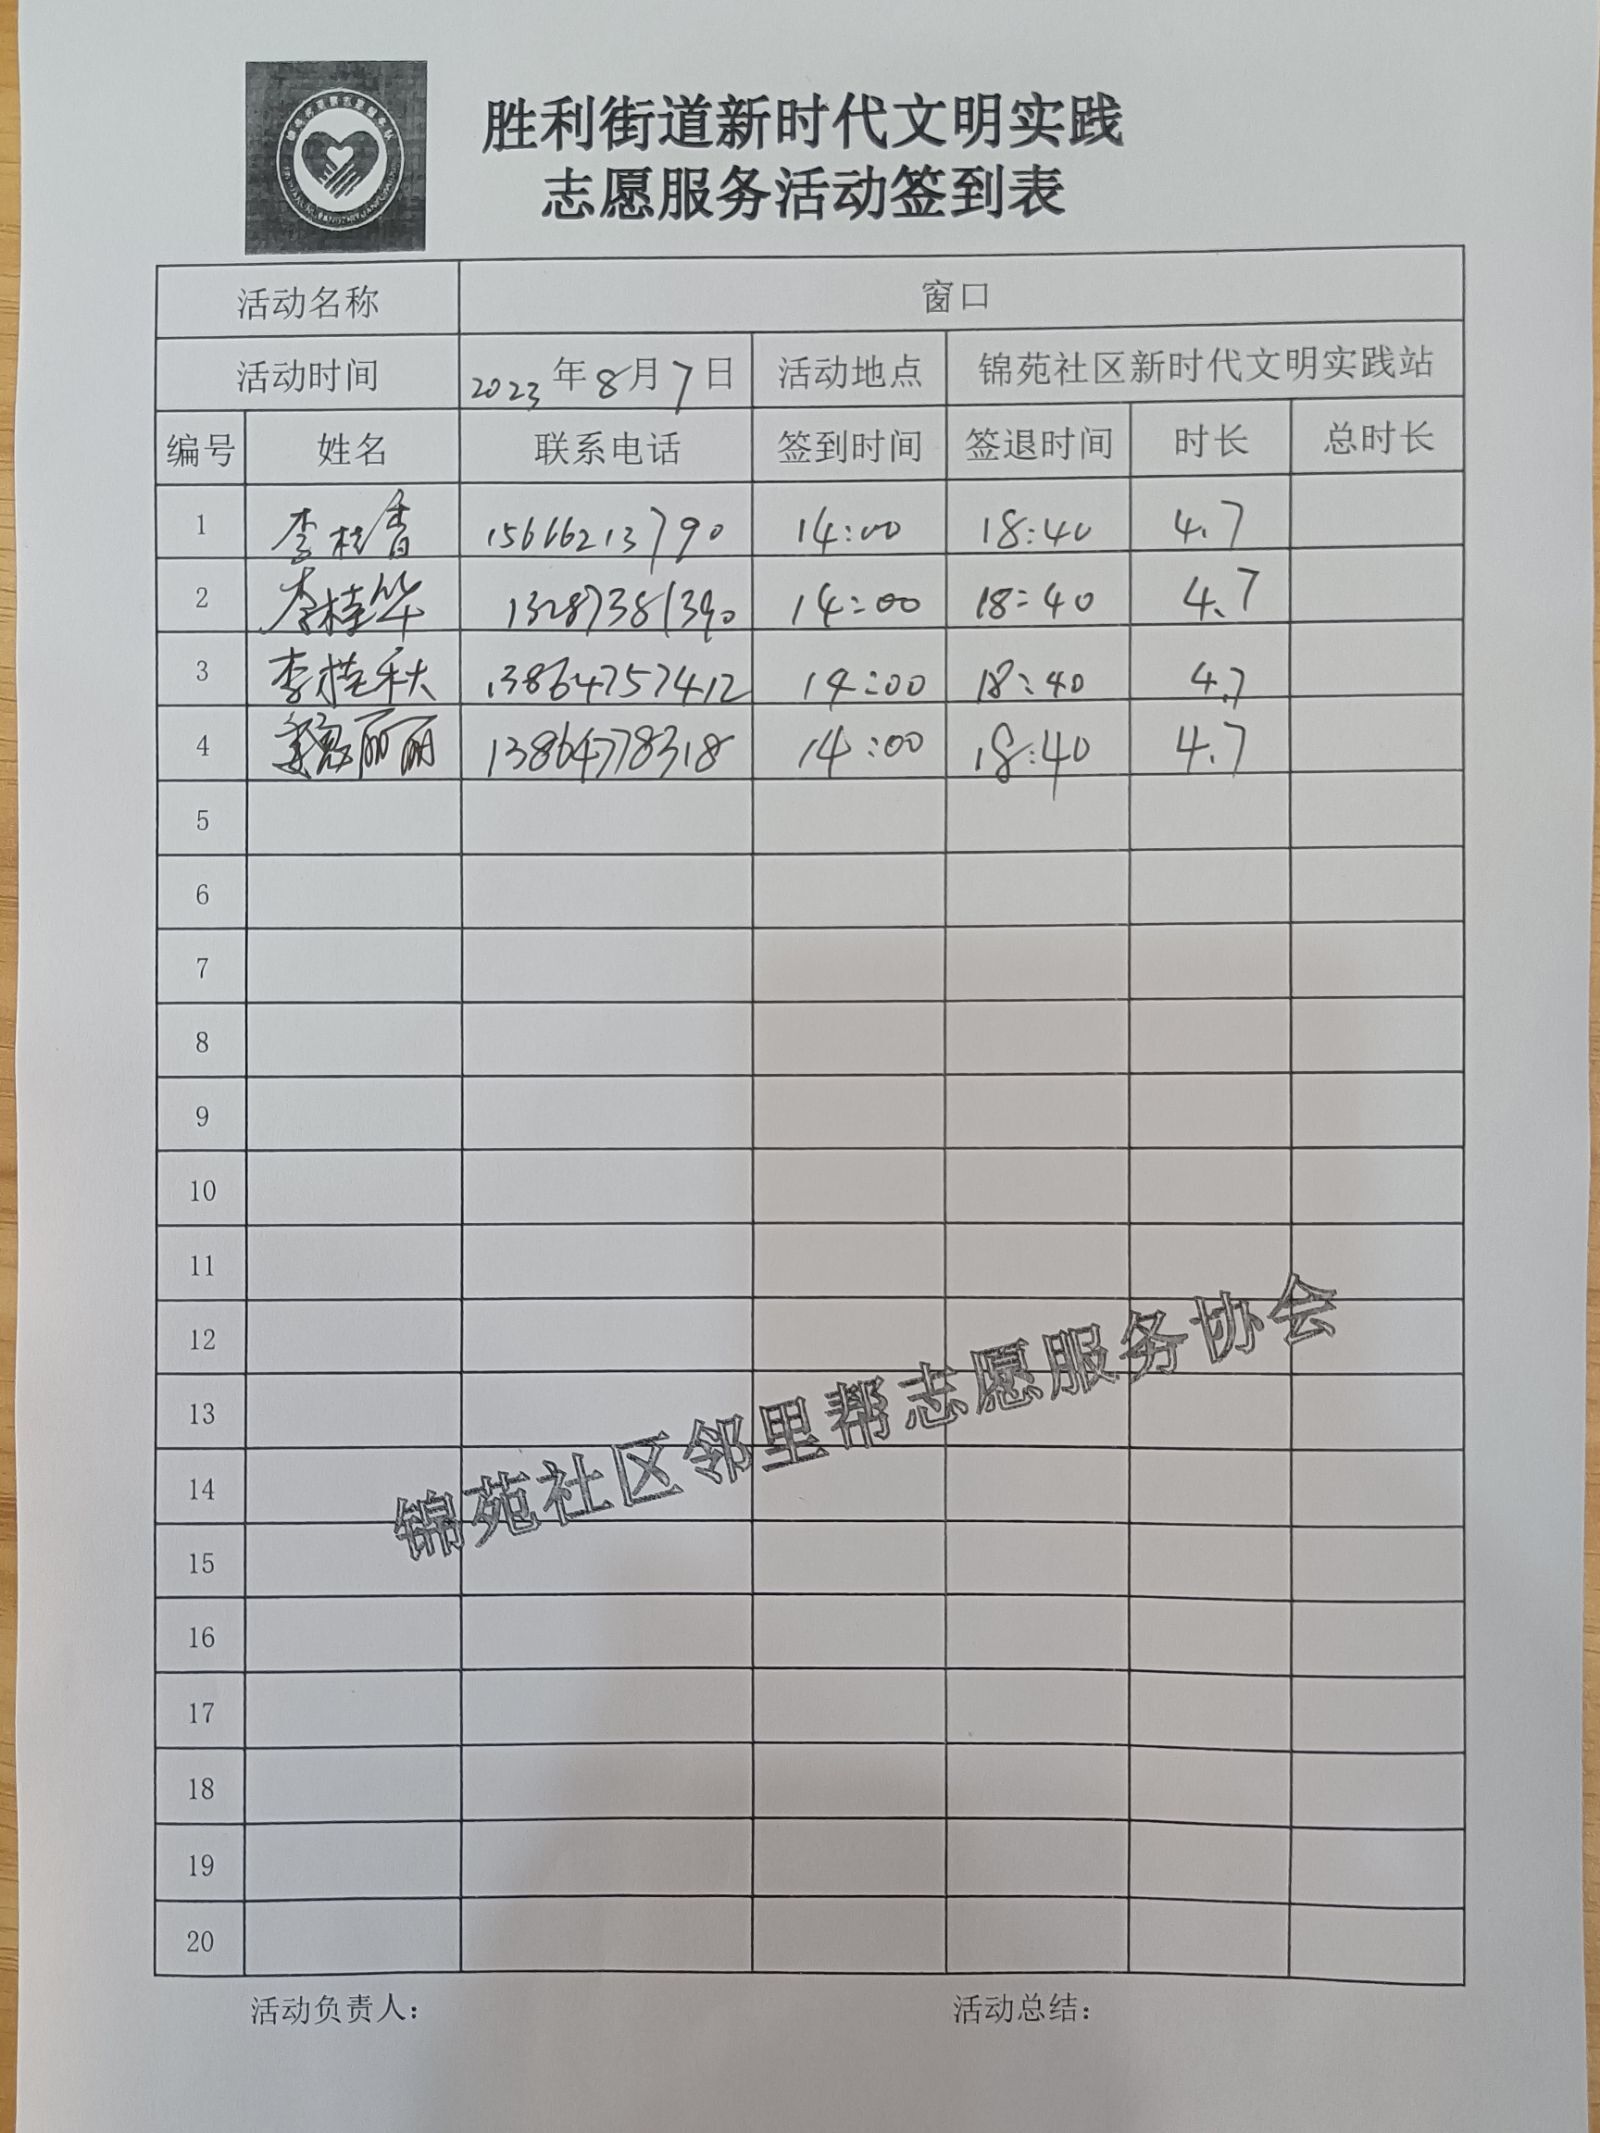 胜利街道新时代文明实践
志愿服务活动签到表
活动名称 窗口
活动时间 2023年8月7日 活动地点 锦苑社区新时代文明实践站
编号 姓名 联系电话 签到时间 签退时间 时长 总时长
1 李桂香 15666213790 14:00 18:40 4.7
2 李桂华 13287381390 14:00 18:40 4.7
3 李桂秋 13864757412 14:00 18:40 4.7
4 丽丽 13864778318 14:00 18:40 4.7
5
6
7
8
9
10
11
12
13
14
15
16
17
18
19
20
锦苑社区邻里帮志愿服务协会
活动负责人： 活动总结：